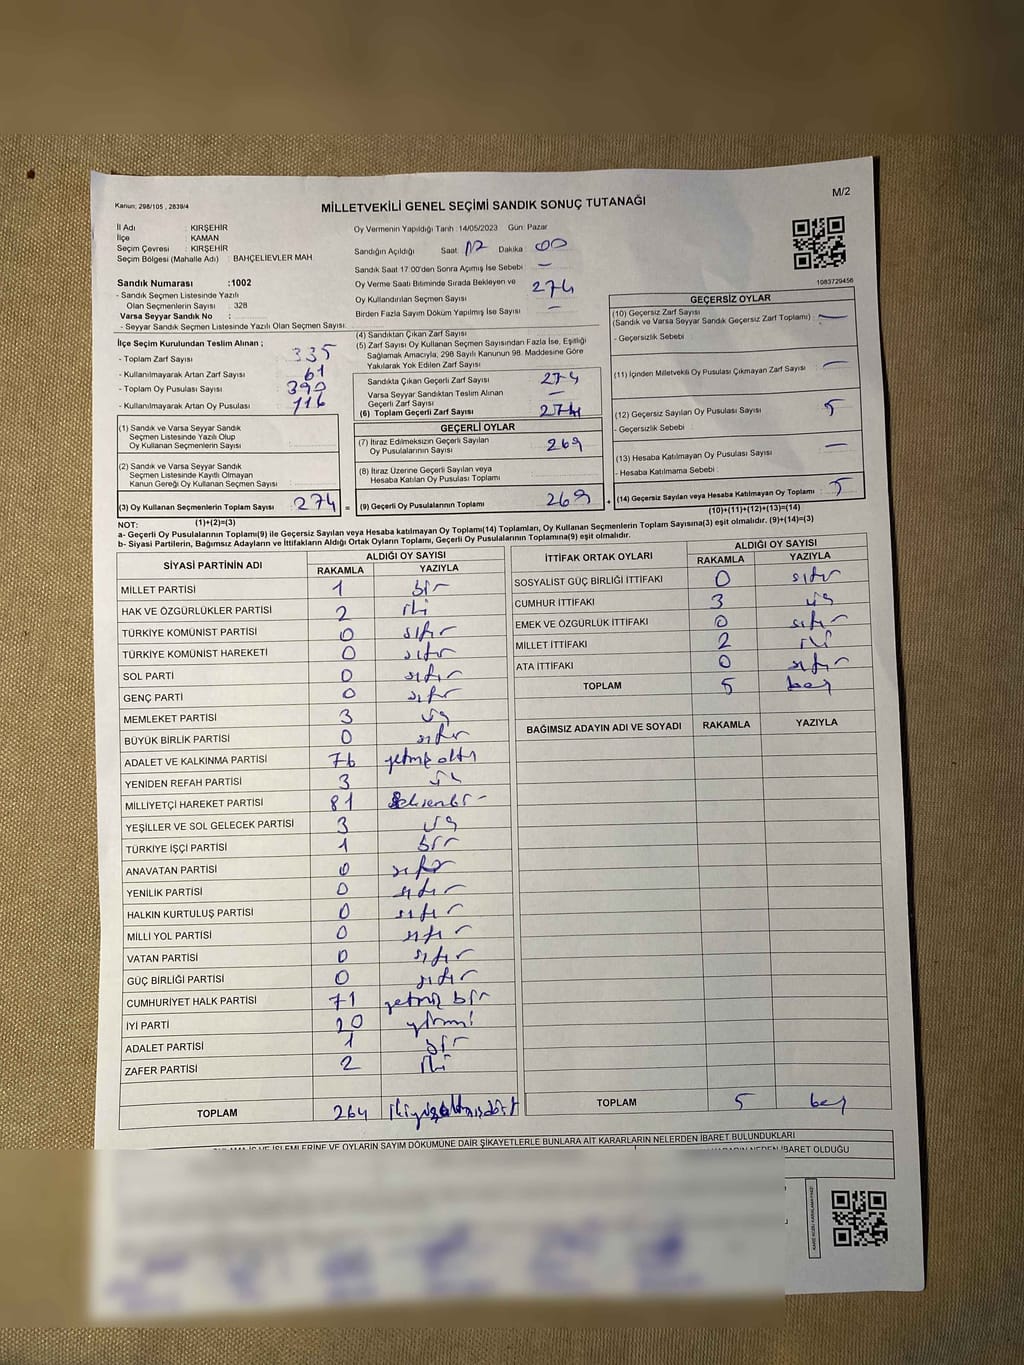 Kanun: 298/105 , 2839/4
MİLLETVEKİLİ GENEL SEÇİMİ SANDIK SONUÇ TUTANAĞI
M/2
İl Adı : KIRŞEHİR
İlçe : KAMAN
Seçim Çevresi : KIRŞEHİR
Seçim Bölgesi (Mahalle Adı) : BAHÇELİEVLER MAH
Sandık Numarası :1002
- Sandık Seçmen Listesinde Yazılı
Olan Seçmenlerin Sayısı : 328
Varsa Seyyar Sandık No :
- Seyyar Sandık Seçmen Listesinde Yazılı Olan Seçmen Sayısı:
Oy Vermenin Yapıldığı Tarih :14/05/2023 Gün: Pazar
Sandığın Açıldığı Saat: 17 Dakika : 00
Sandık Saat 17:00'den Sonra Açımış İse Sebebi : —
Oy Verme Saati Bitiminde Sırada Bekleyen ve
Oy Kullandırılan Seçmen Sayısı : 274
Birden Fazla Sayım Döküm Yapılmış İse Sayısı : —
1083729456
İlçe Seçim Kurulundan Teslim Alınan ;
- Toplam Zarf Sayısı : 335
- Kullanılmayarak Artan Zarf Sayısı : 61
- Toplam Oy Pusulası Sayısı : 390
- Kullanılmayarak Artan Oy Pusulası : 116
(1) Sandık ve Varsa Seyyar Sandık
Seçmen Listesinde Yazılı Olup
Oy Kullanan Seçmenlerin Sayısı :
(2) Sandık ve Varsa Seyyar Sandık
Seçmen Listesinde Kayıtlı Olmayan
Kanun Gereği Oy Kullanan Seçmen Sayısı :
(3) Oy Kullanan Seçmenlerin Toplam Sayısı : 274 =
(1)+(2)=(3)
(4) Sandıktan Çıkan Zarf Sayısı :
(5) Zarf Sayısı Oy Kullanan Seçmen Sayısından Fazla İse, Eşitliği
Sağlamak Amacıyla, 298 Sayılı Kanunun 98. Maddesine Göre
Yakılarak Yok Edilen Zarf Sayısı :
Sandıkta Çıkan Geçerli Zarf Sayısı : 274
Varsa Seyyar Sandıktan Teslim Alınan
Geçerli Zarf Sayısı : —
(6) Toplam Geçerli Zarf Sayısı : 274
GEÇERLİ OYLAR
(7) İtiraz Edilmeksizin Geçerli Sayılan
Oy Pusulalarının Sayısı : 269
(8) İtiraz Üzerine Geçerli Sayılan veya
Hesaba Katılan Oy Pusulası Toplamı :
(9) Geçerli Oy Pusulalarının Toplamı : 269 +
GEÇERSİZ OYLAR
(10) Geçersiz Zarf Sayısı
(Sandık ve Varsa Seyyar Sandık Geçersiz Zarf Toplamı) : —
- Geçersizlik Sebebi :
(11) İçinden Milletvekili Oy Pusulası Çıkmayan Zarf Sayısı : —
(12) Geçersiz Sayılan Oy Pusulası Sayısı : 5
- Geçersizlik Sebebi :
(13) Hesaba Katılmayan Oy Pusulası Sayısı : —
- Hesaba Katılmama Sebebi :
(14) Geçersiz Sayılan veya Hesaba Katılmayan Oy Toplamı : 5
(10)+(11)+(12)+(13)=(14)
NOT:
a- Geçerli Oy Pusulalarının Toplamı(9) ile Geçersiz Sayılan veya Hesaba katılmayan Oy Toplamı(14) Toplamları, Oy Kullanan Seçmenlerin Toplam Sayısına(3) eşit olmalıdır. (9)+(14)=(3)
b- Siyasi Partilerin, Bağımsız Adayların ve İttifakların Aldığı Ortak Oyların Toplamı, Geçerli Oy Pusulalarının Toplamına(9) eşit olmalıdır.
SİYASİ PARTİNİN ADI ALDIĞI OY SAYISI
RAKAMLA YAZIYLA
MİLLET PARTİSİ 1 bir
HAK VE ÖZGÜRLÜKLER PARTİSİ 2 iki
TÜRKİYE KOMÜNİST PARTİSİ 0 sıfır
TÜRKİYE KOMÜNİST HAREKETİ 0 sıfır
SOL PARTİ 0 sıfır
GENÇ PARTİ 0 sıfır
MEMLEKET PARTİSİ 3 üç
BÜYÜK BİRLİK PARTİSİ 0 sıfır
ADALET VE KALKINMA PARTİSİ 76 yetmiş altı
YENİDEN REFAH PARTİSİ 3 üç
MİLLİYETÇİ HAREKET PARTİSİ 81 Seksenbir
YEŞİLLER VE SOL GELECEK PARTİSİ 3 üç
TÜRKİYE İŞÇİ PARTİSİ 1 bir
ANAVATAN PARTİSİ 0 sıfır
YENİLİK PARTİSİ 0 sıfır
HALKIN KURTULUŞ PARTİSİ 0 sıfır
MİLLİ YOL PARTİSİ 0 sıfır
VATAN PARTİSİ 0 sıfır
GÜÇ BİRLİĞİ PARTİSİ 0 sıfır
CUMHURİYET HALK PARTİSİ 71 yetmiş bir
İYİ PARTİ 20 yirmi
ADALET PARTİSİ 1 bir
ZAFER PARTİSİ 2 iki
TOPLAM 264 ikiyüzaltmışdört
İTTİFAK ORTAK OYLARI ALDIĞI OY SAYISI
RAKAMLA YAZIYLA
SOSYALİST GÜÇ BİRLİĞİ İTTİFAKI 0 sıfır
CUMHUR İTTİFAKI 3 üç
EMEK VE ÖZGÜRLÜK İTTİFAKI 0 sıfır
MİLLET İTTİFAKI 2 iki
ATA İTTİFAKI 0 sıfır
TOPLAM 5 beş
BAĞIMSIZ ADAYIN ADI VE SOYADI RAKAMLA YAZIYLA
TOPLAM 5 beş
İŞLEMLERİNE VE OYLARIN SAYIM DÖKÜMÜNE DAİR ŞİKAYETLERLE BUNLARA AİT KARARLARIN NELERDEN İBARET BULUNDUKLARI
İBARET OLDUĞU